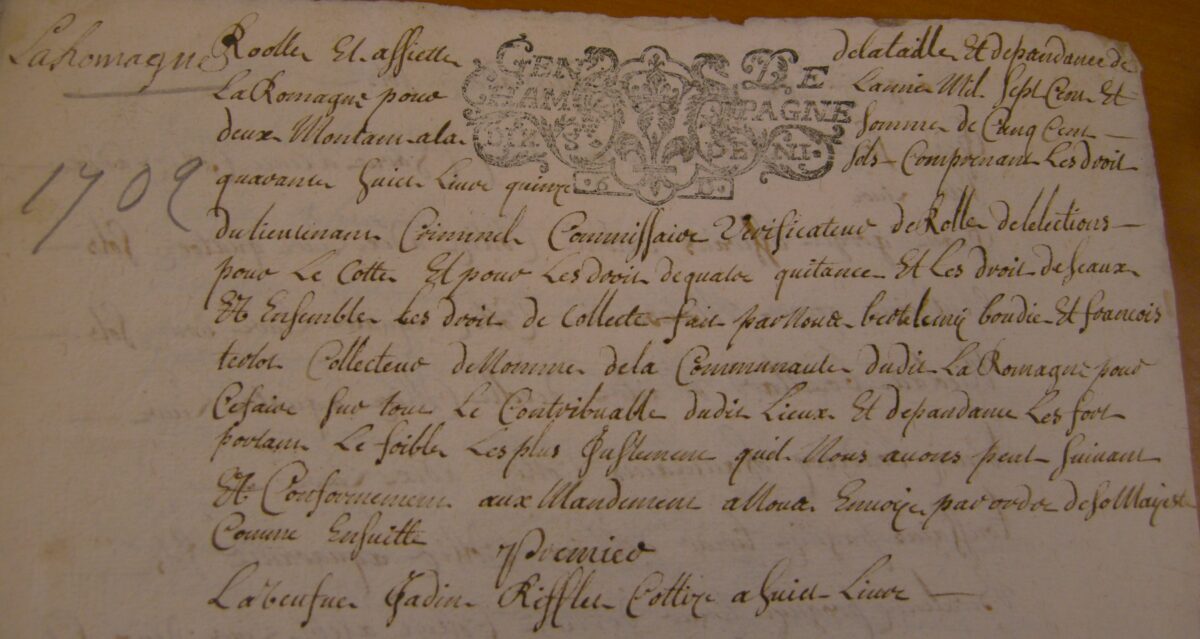 La Romagne
1709
GEN DE
CHAM PAGNE
SIX DENI.
Roolle Et assiette delataille Et depandance de
La Romagne pour Lannee Mil Sept Cent Et
deux Montant ala Somme de Cinq Cent
quarante huict Livre quinze Sols Comprenant Les droit
du lieutenant Criminel Commissaire Verificateur de Rolle delelections
pour Le Cotte Et pour Les droit dequatre quitance Et Les droit de Seaux
Et Ensemble Les droit de Collecte fait par Nous bertelemy boudie Et francois
terlot Collecteur de Nomme dela Communaute dudit La Romagne pour
Cefaire Sur tout Le Contribualle dudit Lieux Et depandance Les fort
portant Le foible Les plus Justement quil Nous avons peut Suivant
Et Conformement aux Mandement a Nous Envoije par ordre de Sa Majeste
Comme Ensuitte
Premier
La beufue Jadin Rifflet Cottize a huict Livre